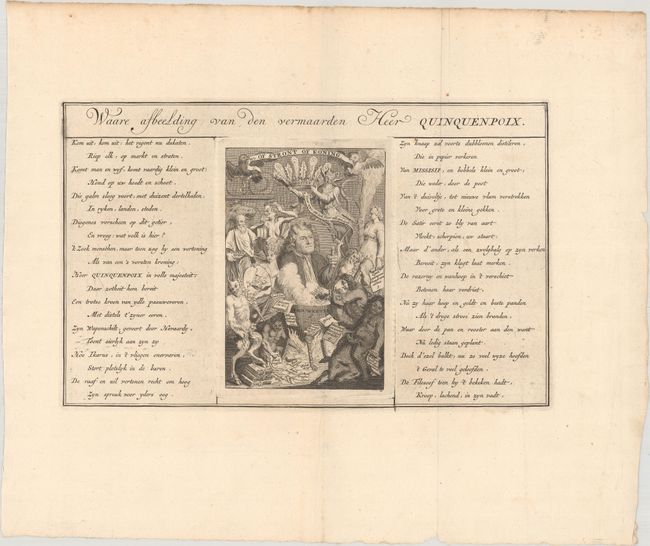 Waare afbeelding van den vermaarden Heer QUINQUENPOIX.
OF STRONT OF KONING
Kom uit; kom uit; het regent nu dukaten.
Riep elk; op markt en straten.
Komt man en wyf; komt vaardig klein en groot;
Houd op uw hoedt en schoot.
Die galm sloeg voort; met duizent dertelheden.
In ryken; landen; steden.
Diogenes verscheen op dit getier;
En vroeg: wat volk is hier?
'k Zoek menschen; maar toen zag hy een vertoning
Als van een's verreten kroning;
Heer QUINQUENPOIX in volle majesteit;
Daar zotheit hem bereit
Een trotse kroon van ydle paauwveren.
Met distels t'zyner eeren.
Zyn Wapenschilt; gevoert door Hovaardy;
Toont sierlyk aan zyn zy
Hoe Ikarus; in 't vliegen
Stort plotslyk in de baren.
De raaf en uil vertonen recht om hoog
Zyn spreuk voor yders oog.
Zyn knaap zal voorts dubbloenen distileren;
Die in papier verkeren
Van MISSISIPI; en bobbels klein en groot;
Die weder; door de poot
Van 't duiveltje; tot nieuwe vlam verstrekken
Voor grote en kleine gekken.
De Satir eerst zo bly van aart
Vloekt; scherpioen; uw staart;
Maar d'ander; als een zwelghals op zyn verken
Bereit; zyn klagt laat merken.
De razerny en wanhoop in 't verschiet
Betonen haar verdriet;
Nu zy haar hoop en geldt en beste panden
Als 't droge stroo zien branden.
Waar door de pan en rooster aan den want
Nu ledig staan geplant.
Doch d'ezel balkt; nu zo veel wyze hoofden
't Geval te veel geloofden.
De Filosoof toen hy 't bekeken hadt;
Kroop; lachend; in zyn vadt.